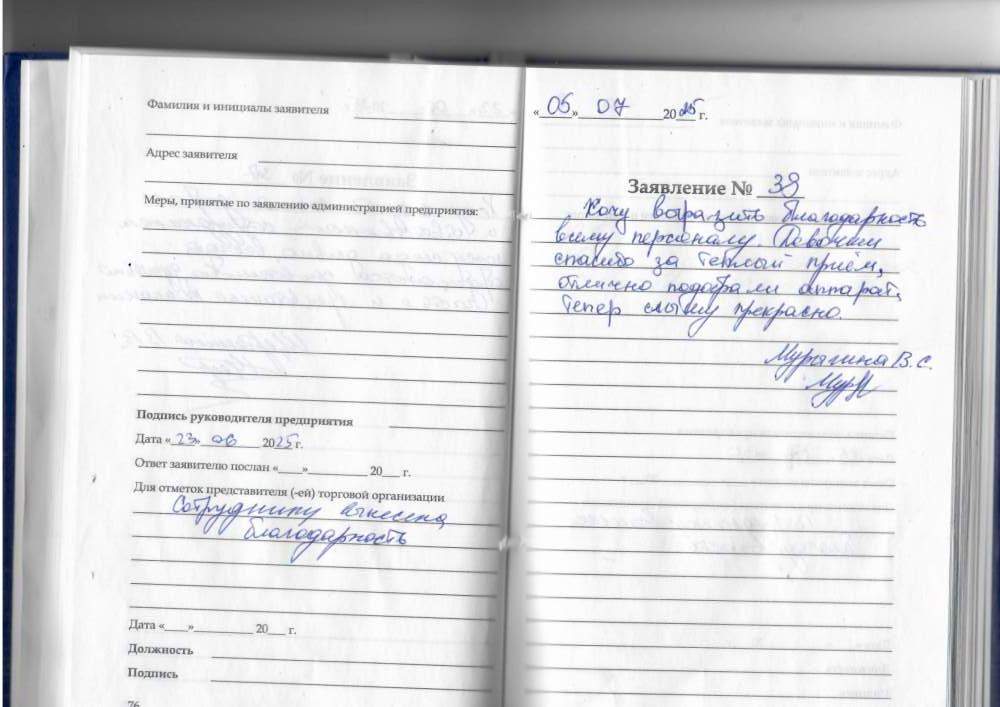 Фамилия и инициалы заявителя
Адрес заявителя
Меры, принятые по заявлению администрацией предприятия:
Подпись руководителя предприятия
Дата «23» 06 2025 г.
Ответ заявителю послан «____»__________ 20___ г.
Для отметок представителя (-ей) торговой организации
Сотруднику вынесена
благодарность
Дата «____»__________ 20___ г.
Должность
Подпись
76
«05» 07 2025 г.
Заявление № 39
Хочу выразить благодарность
всему персоналу. Девочки
спасибо за теплый приём,
отлично подобрали аппарат,
тепер слышу прекрасно.
В.С.